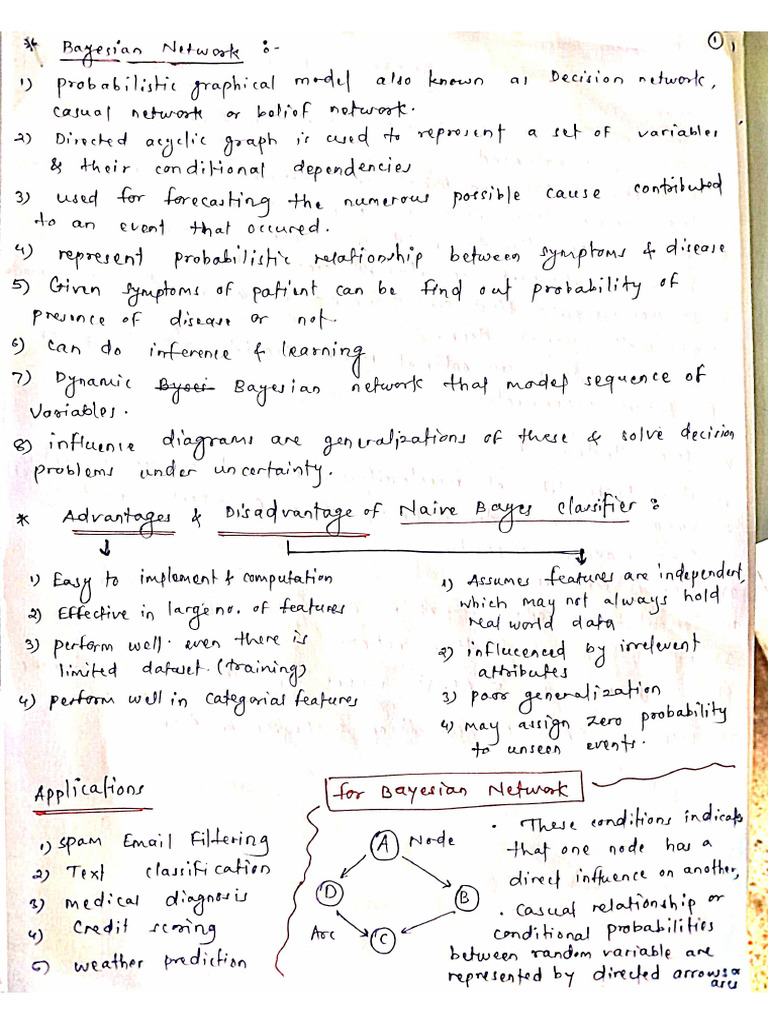 * Bayesian Network :-
1
1) probabilistic graphical model also known as Decision network,
casual network or belief network.
2) Directed acyclic graph is used to represent a set of variables
& their conditional dependencies
3) used for forecasting the numerous possible cause contributed
to an event that occured.
4) represent probabilistic relationship between symptoms & disease
5) Given symptoms of patient can be find out probability of
presence of disease or not.
6) can do inference & learning
7) Dynamic Bayesian network that model sequence of
variables.
8) influence diagrams are generalizations of these & solve decision
problems under uncertainty.
* Advantages & Disadvantage of Naive Bayes Classifier :
1) Easy to implement & computation
2) Effective in large no. of features
3) perform well even there is
limited dataset. (training)
4) perform well in categorial features
1) Assumes features are independent,
which may not always hold
real world data
2) influcenced by irrelevent
attributes
3) poor generalization
4) may assign zero probability
to unseen events.
Applications
1) spam Email Filtering
2) Text classification
3) medical diagnosis
4) credit scoring
5) weather prediction
for Bayesian Network
A Node
D
B
Arc
C
• These conditions indicats
that one node has a
direct influence on another,
• Casual relationship or
conditional probabilities
between random variable are
represented by directed arrows or
arcs